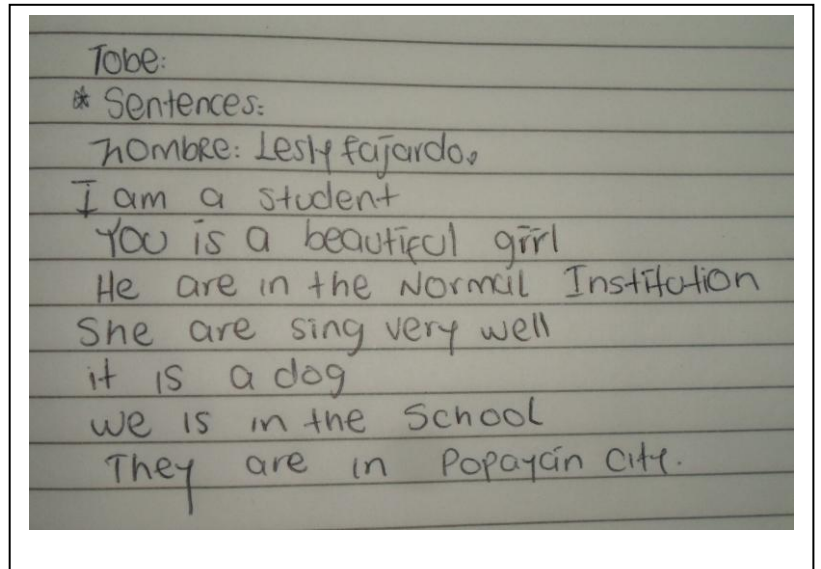 Tobe:
* Sentences:
nombre: Lesly fajardo.
I am a student
You is a beautiful girl
He are in the Normal Institution
She are sing very well
it is a dog
we is in the School
They are in Popayán City.